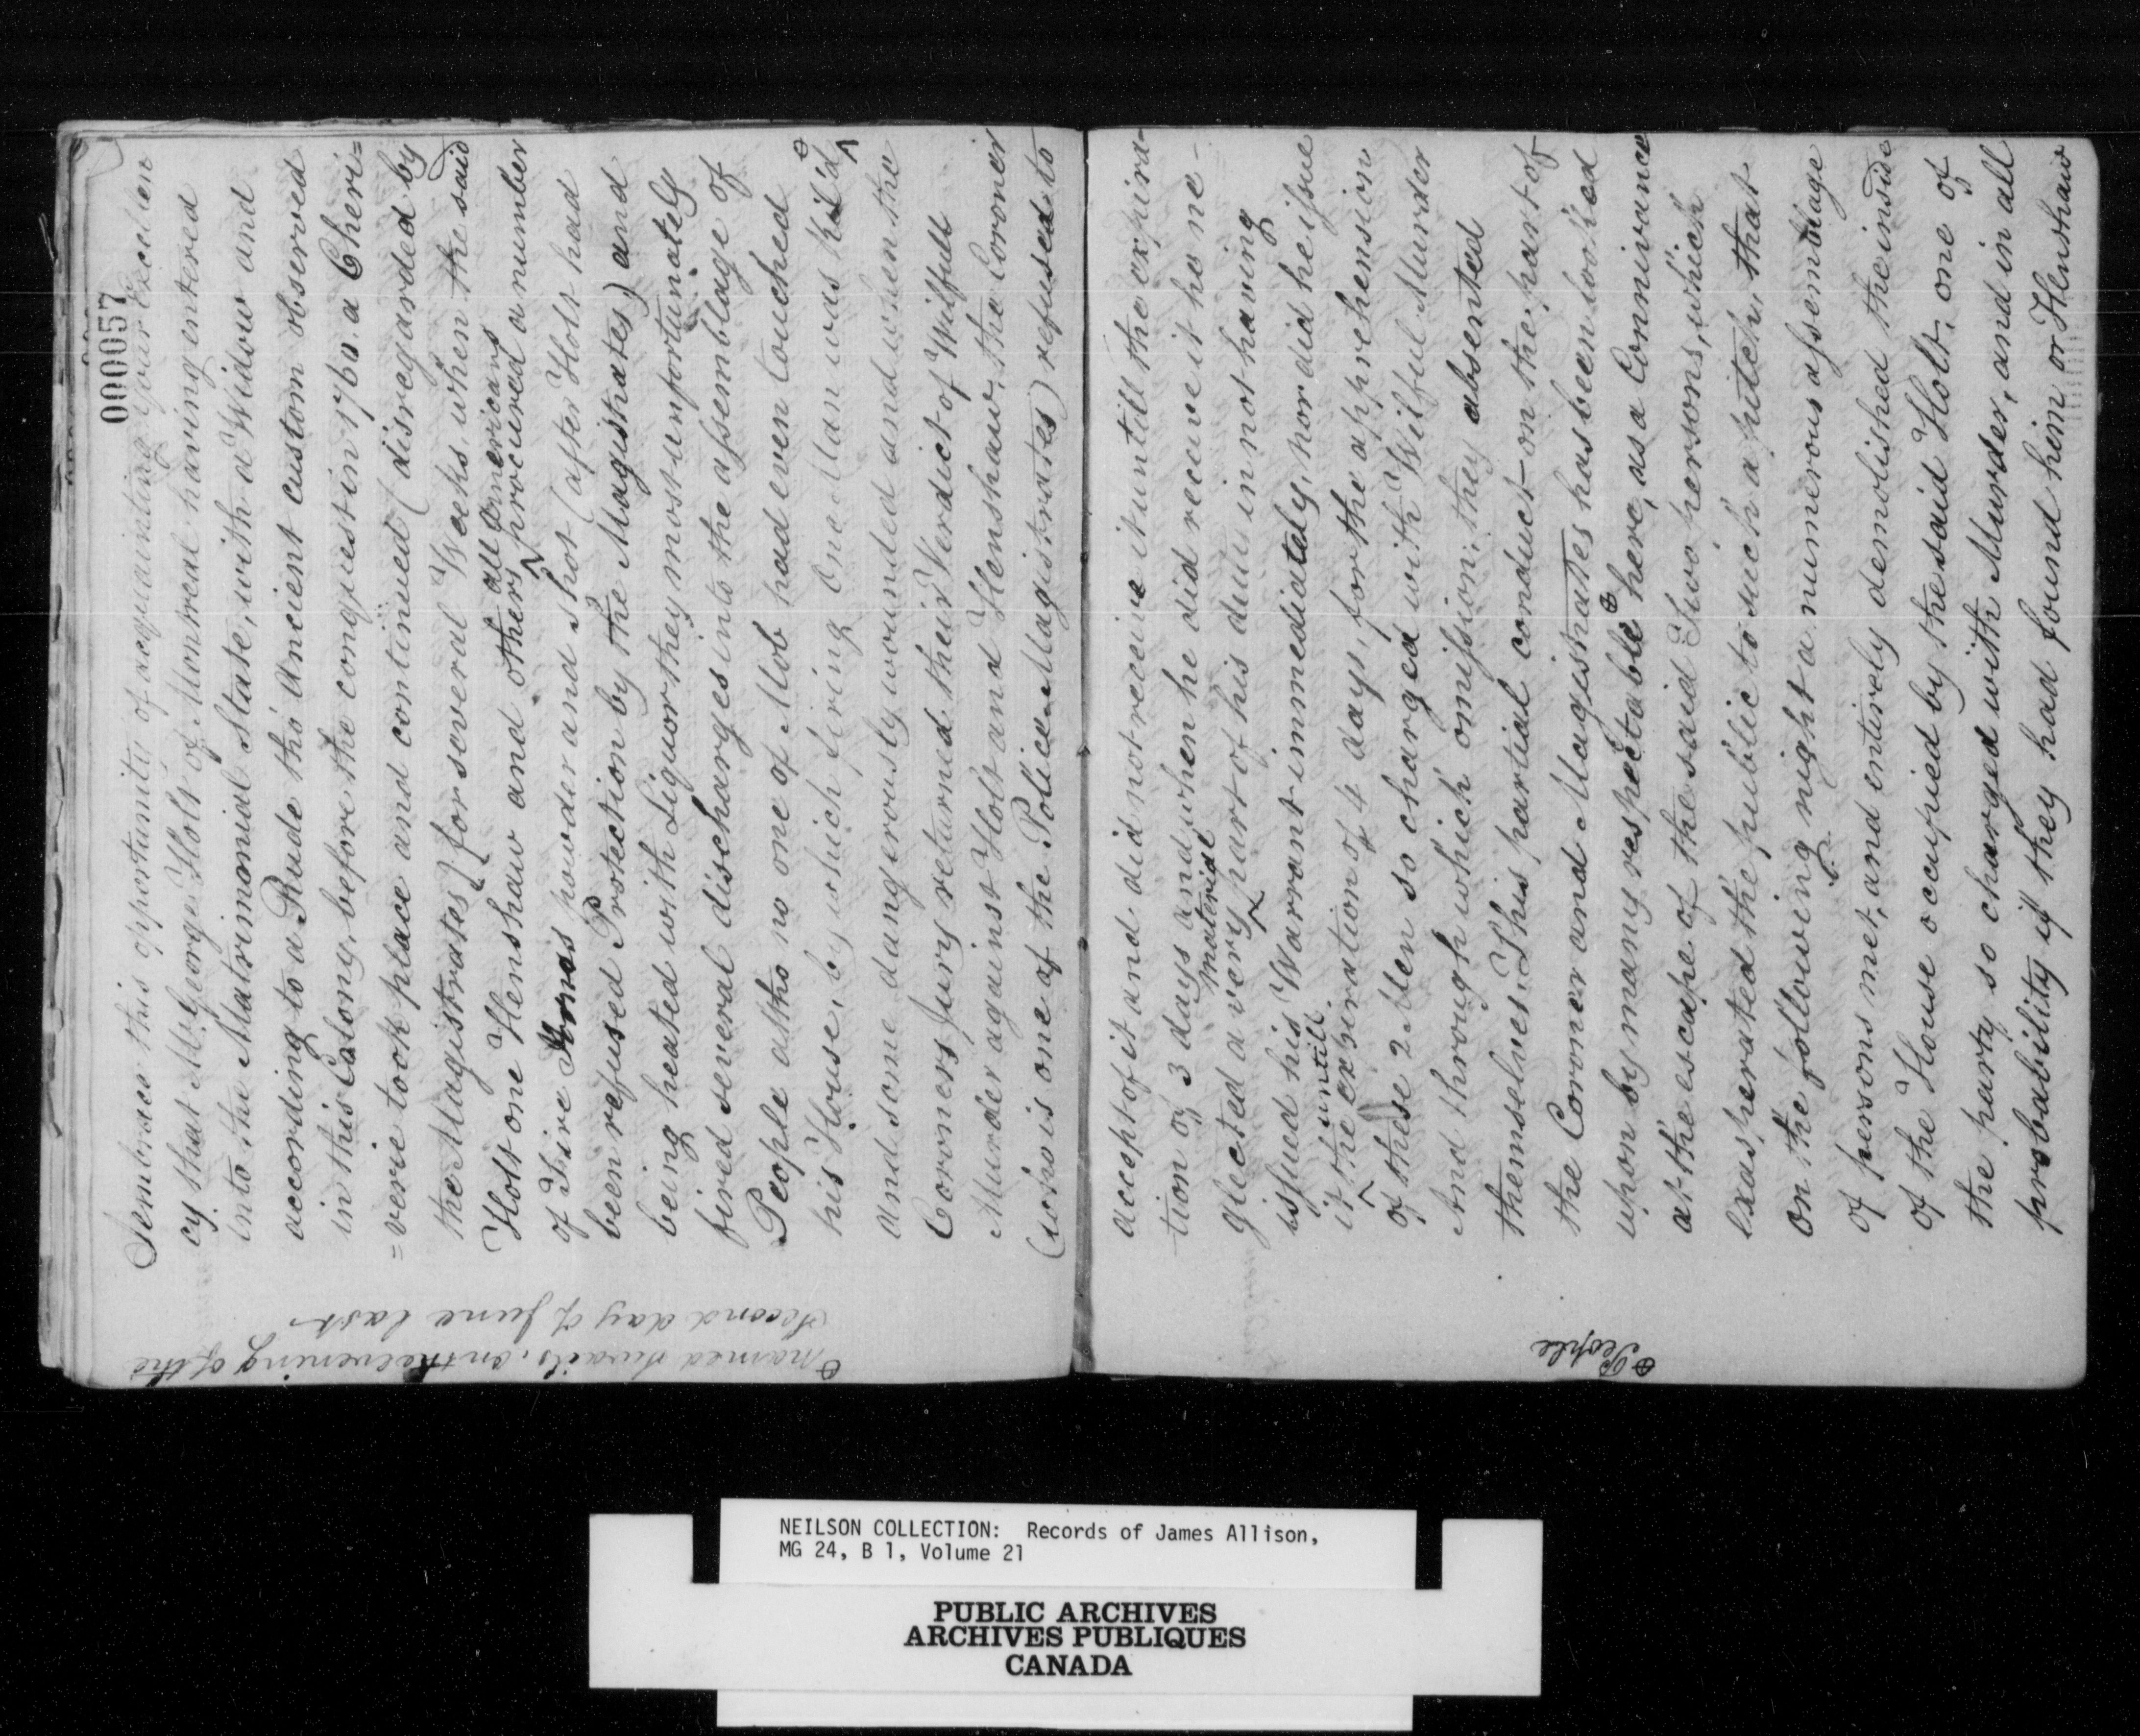 000057
I embrace this opportunity of acquainting your Excellen
cy that Mr. George Holt of Montreal having entered
into the Matrimonial State, with a Widow and
according to a Rude tho' Ancient custom observed
in this Colony, before the conquest in 1760. a Cheri=
=verie took place and continued (disregarded by
the Magistrates) for several Weeks, when the said
Holt one Henshaw and others all Americans procured a number
of Fire Arms powder and shot (after Holt had
been refused Protection by the Magistrates) and
being heated with Liquor they most unfortunately
fired several discharges into the assemblage of
People altho no one of Mob had even touched
his House, by which firing One Man was kil'd ⊕
and some dangerously wounded and when the
Coroners Jury returned their Verdict of Wilfull
Murder against Holt and Henshaw, the Coroner
(who is one of the Police Magistrates) refused to
⊕ named on the evening of the
second day of June last
accept of it and did not receive it untill the expira-
tion of 3 days and when he did receive it he ne-
glected a very material part of his duty in not having
issued his Warrant immediately, nor did he issue
it untill the expiration of 4 days, for the apprehension
of these 2 Men so charged with Wilful Murder
And through which omission, they absented
themselves. This partial conduct on the part of
the Coroner and Magistrates has been looked
upon by many respectable ⊕ here, as a Connivance
at the escape of the said Two persons, which
exasperated the public to such a pitch, that
on the following night a numerous assemblage
of persons met, and entirely demolished the inside
of the House occupied by the said Holt, one of
the party so charged with Murder, and in all
probability if they had found him or Henshaw
⊕ People
NEILSON COLLECTION: Records of James Allison,
MG 24, B 1, Volume 21
PUBLIC ARCHIVES
ARCHIVES PUBLIQUES
CANADA